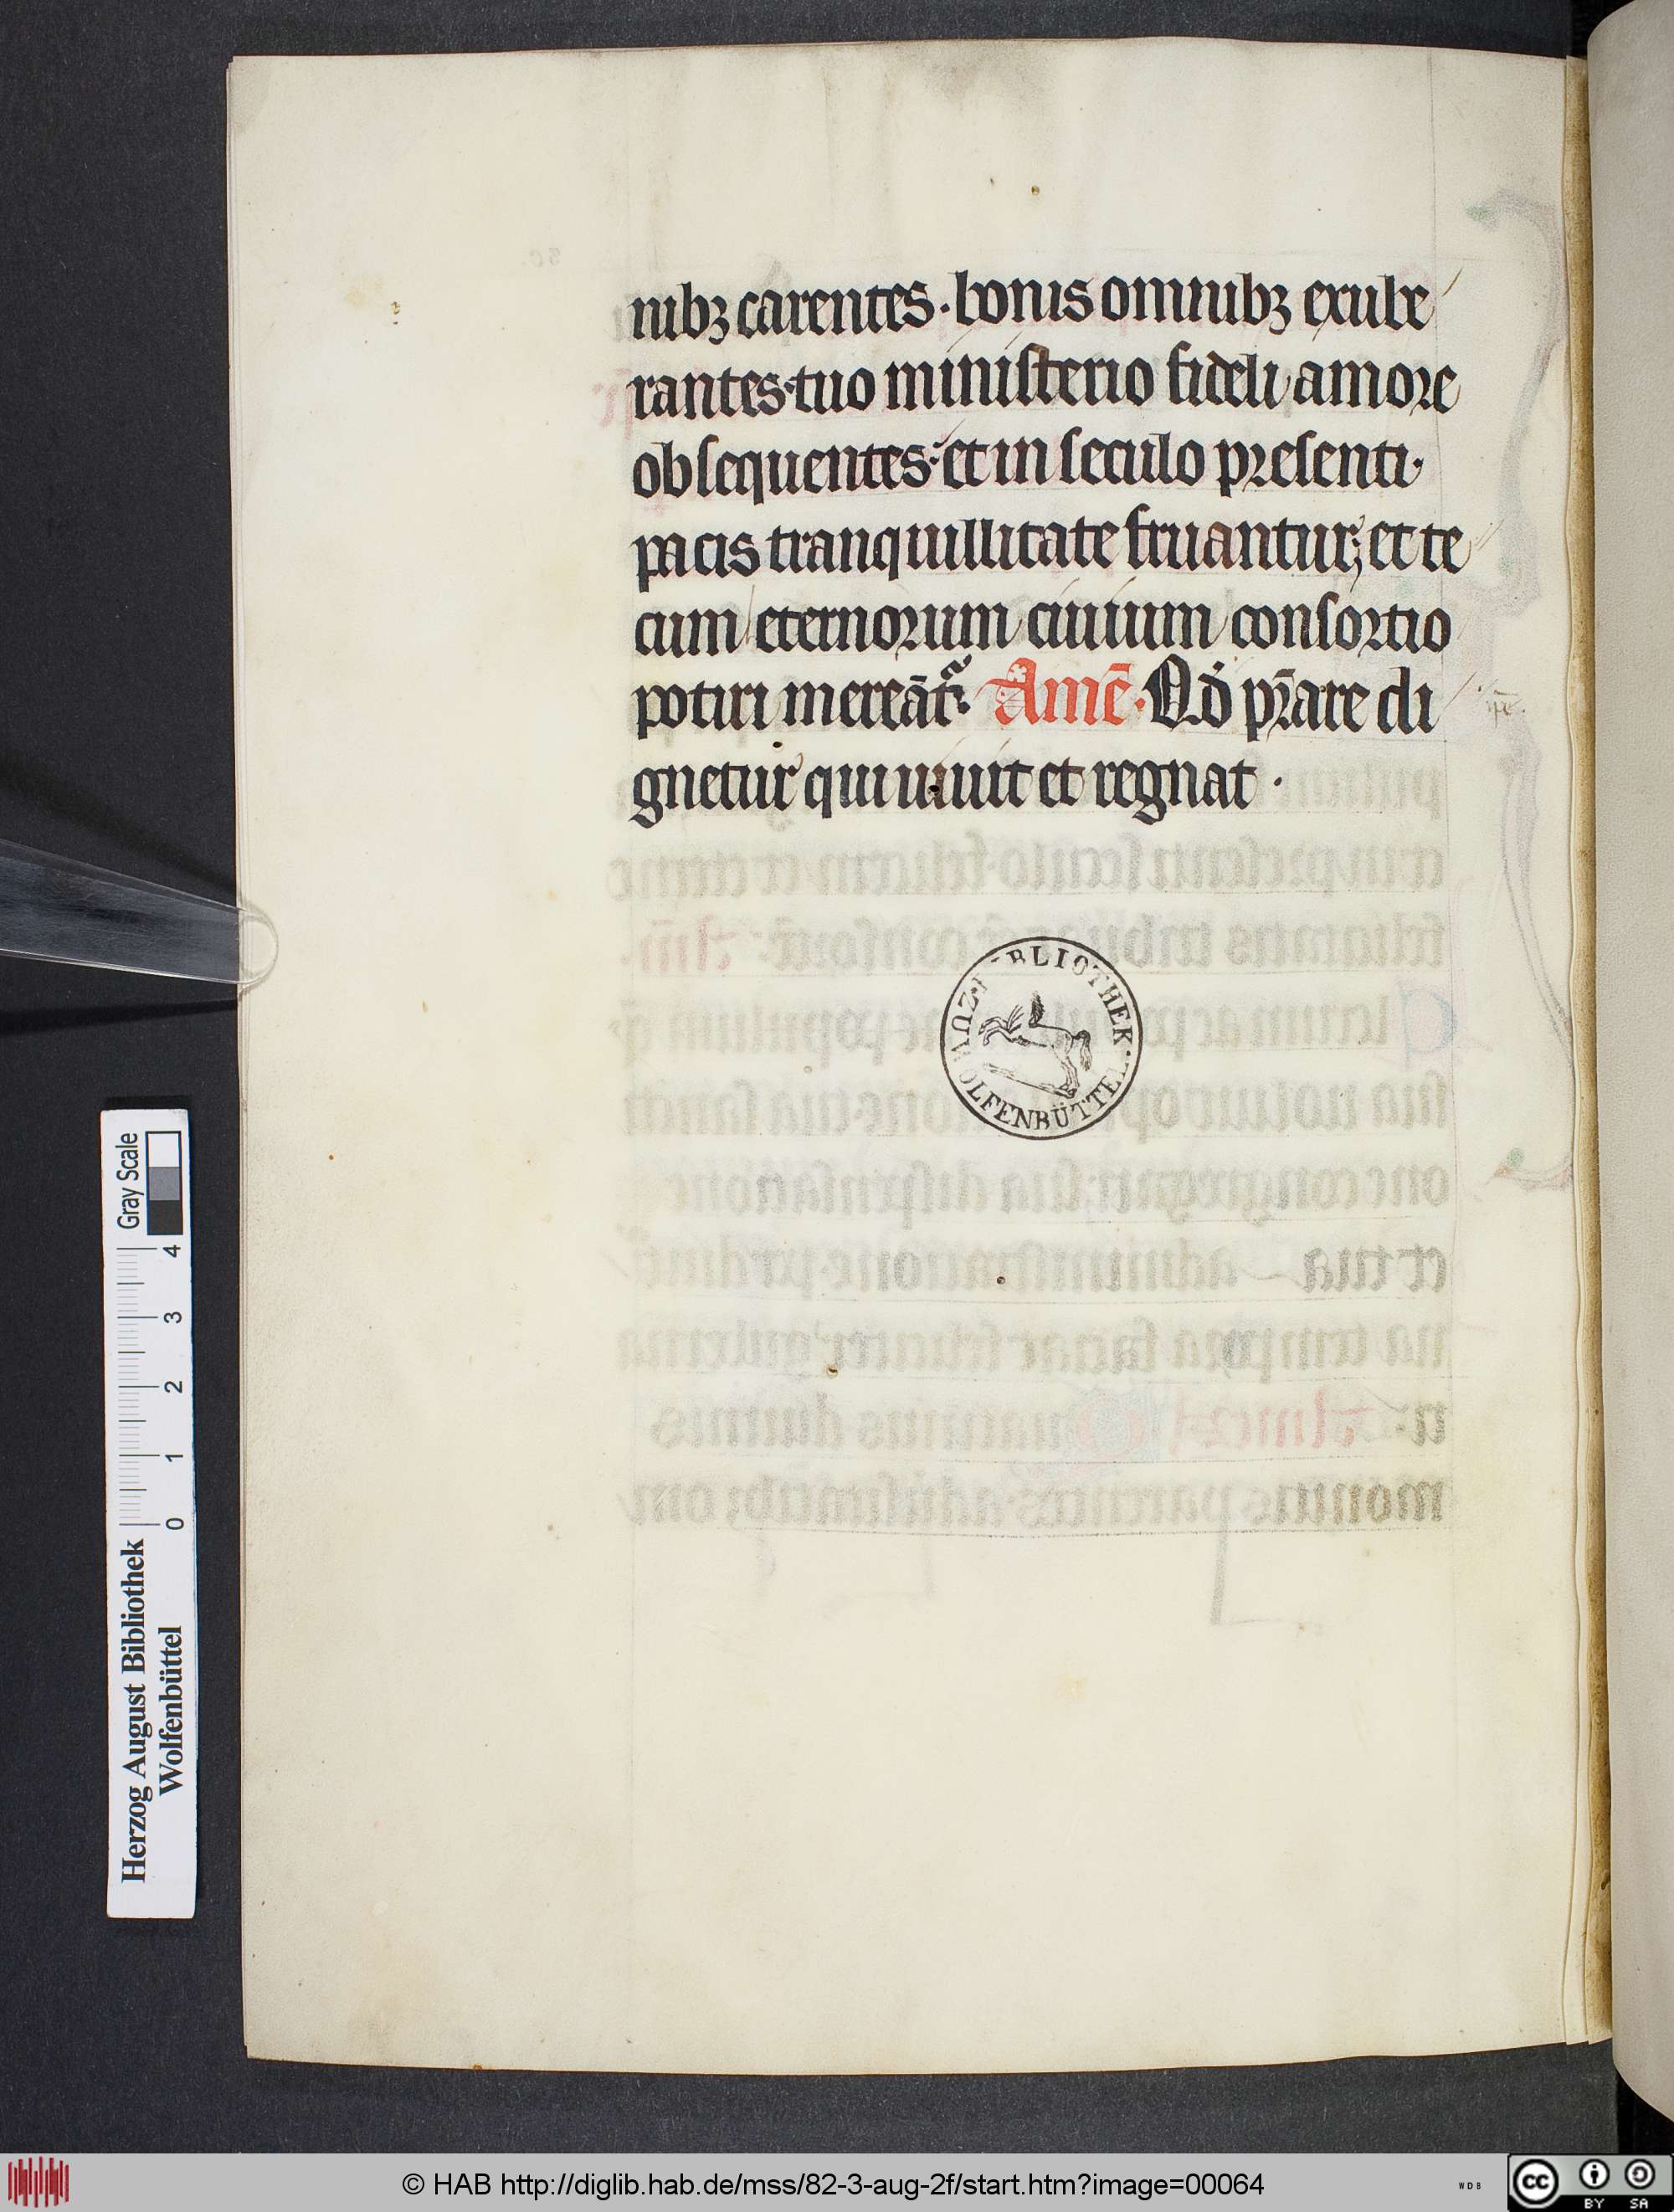 nibꝫ carentes. bonis omnibꝫ exube
rantes. tuo ministerio fideli amore
obsequentes. et in seculo presenti.
pacis tranquillitate fruantur; et te
cum eternorum ciuium consortio
potiri mereãt᷑. Amē. Qď p̄rare di
gnetur qui uiuit et regnat.
BIBLIOTHEK
ZU WOLFENBÜTTEL
Gray Scale
4
3
2
1
0
Herzog August Bibliothek
Wolfenbüttel
© HAB http://diglib.hab.de/mss/82-3-aug-2f/start.htm?image=00064
WDB
cc
BY SA